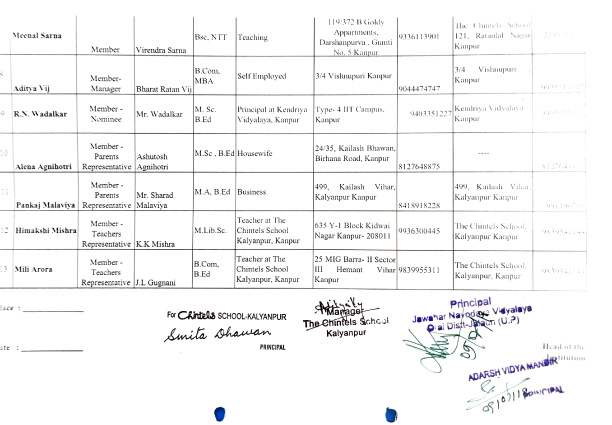 Meenal Sarna Member Virendra Sarna Bsc, NTT Teaching 119/372 B Gokly Appartments, Darshanpurva , Gumti No. 5 Kanpur 9336113901 The Chintels School 121, Ratanlal Nagar Kanpur
Aditya Vij Member-Manager Bharat Ratan Vij B.Com, MBA Self Employed 3/4 Vishnupuri Kanpur 9044474747 3/4 Vishnupuri Kanpur
R.N. Wadalkar Member - Nominee Mr. Wadalkar M. Sc. B.Ed Principal at Kendriya Vidyalaya, Kanpur Type- 4 IIT Campus, Kanpur 9403351227 Kendriya Vidyalaya Kanpur
Alena Agnihotri Member - Parents Representative Ashutosh Agnihotri M.Sc , B.Ed Housewife 24/35, Kailash Bhawan, Birhana Road, Kanpur 8127648875 ----
Pankaj Malaviya Member - Parents Representative Mr. Sharad Malaviya M.A, B.Ed Business 499, Kailash Vihar, Kalyanpur Kanpur 8418918228 499, Kailash Vihar, Kalyanpur Kanpur
12 Himakshi Mishra Member - Teachers Representative K.K Mishra M.Lib.Sc. Teacher at The Chintels School Kalyanpur, Kanpur 635 Y-1 Block Kidwai Nagar Kanpur- 208011 9936300445 The Chintels School, Kalyanpur, Kanpur
13 Mili Arora Member - Teachers Representative J.L Gugnani B.Com, B.Ed Teacher at The Chintels School Kalyanpur, Kanpur 25 MIG Barra- II Sector III Hemant Vihar Kanpur 9839955311 The Chintels School, Kalyanpur, Kanpur
For Chintels SCHOOL-KALYANPUR
Smita Dhawan
PRINCIPAL
Manager
The Chintels School
Kalyanpur
Principal
Jawahar Navodaya Vidyalaya
Orai Distt-Jalaun (U.P)
Head of the
Institution
ADARSH VIDYA MANDIR
PRINCIPAL